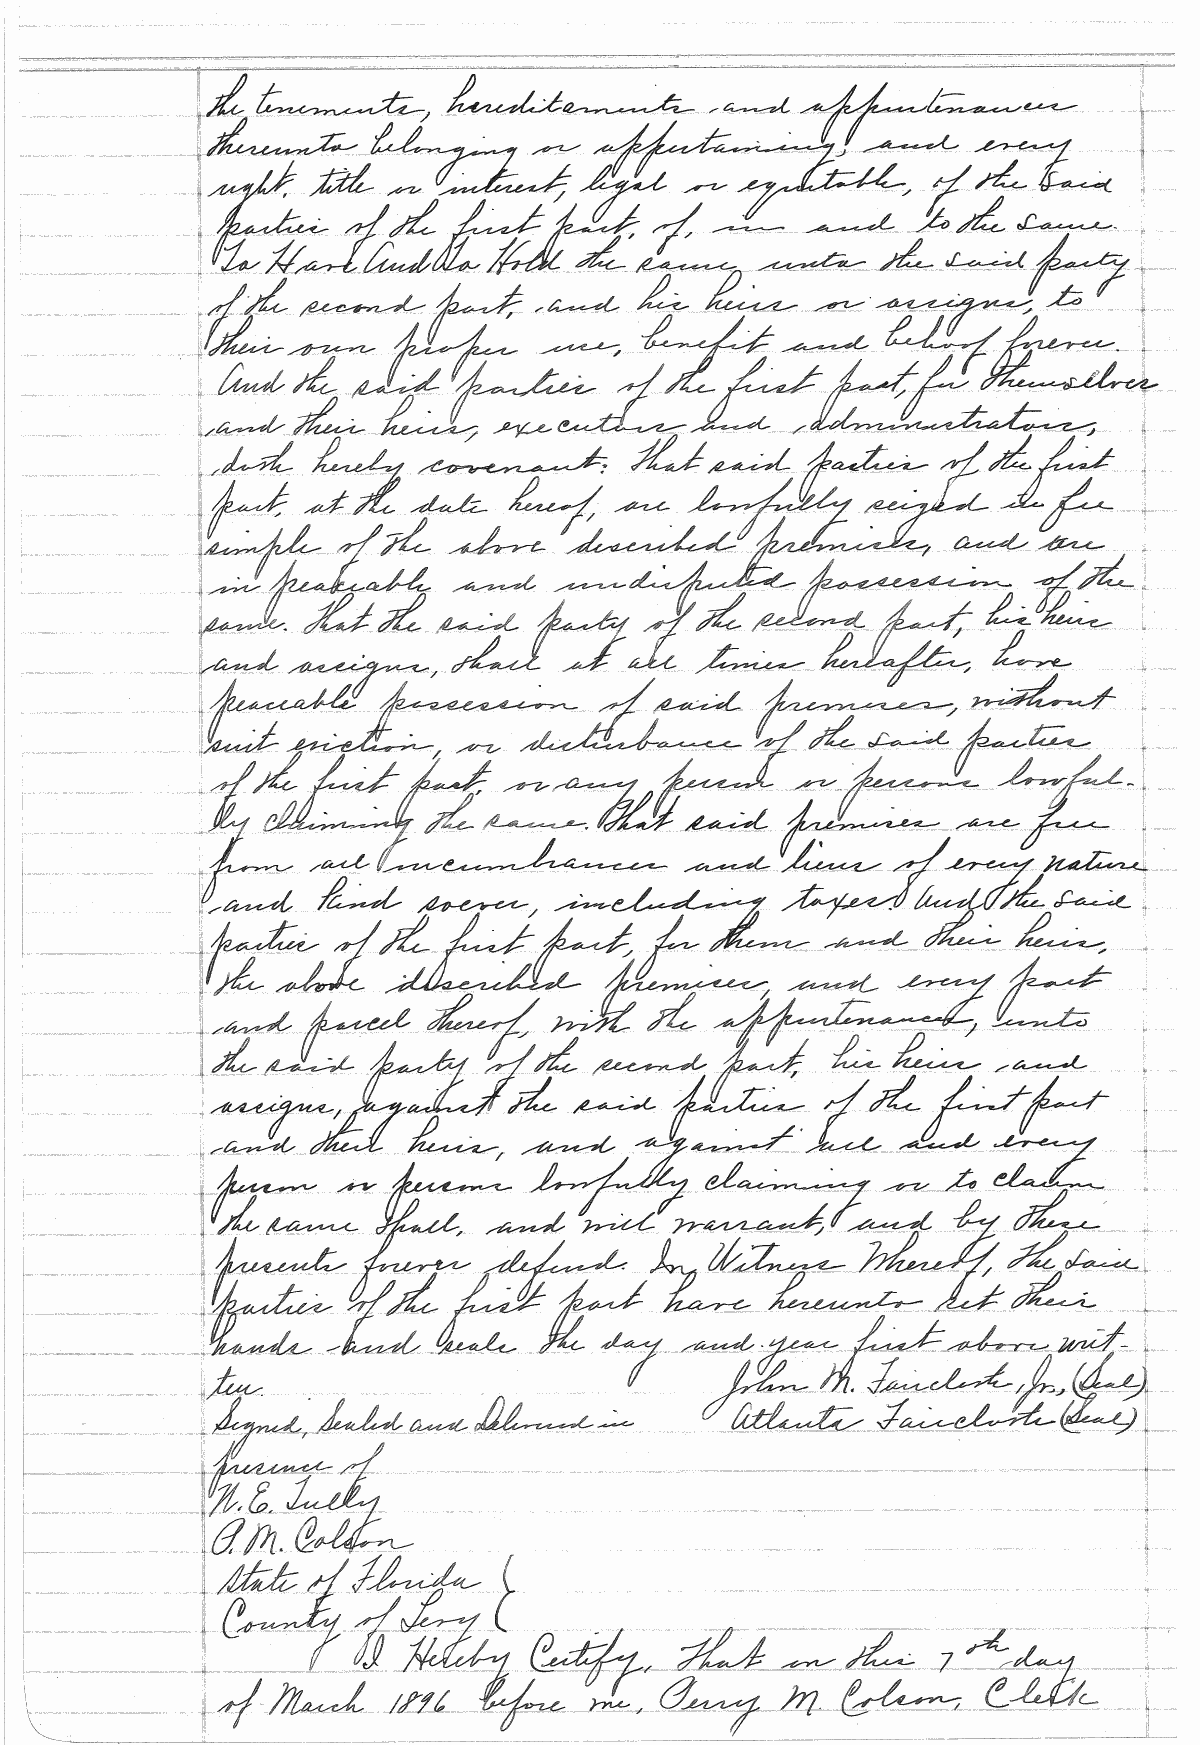 the tenements, hereditaments and appurtenances
thereunto belonging or appertaining; and every
right, title or interest, legal or equitable, of the said
parties of the first part, of, in and to the same.
To Have And To Hold the same unto the said party
of the second part, and his heirs or assigns, to
their own proper use, benefit and behoof forever.
And the said parties of the first part, for themselves
and their heirs, executors and administrators,
doth hereby covenant: That said parties of the first
part, at the date hereof, are lawfully seized in fee
simple of the above described premises, and are
in peaceable and undisputed possession of the
same. That the said party of the second part, his heirs
and assigns, shall at all times hereafter, have
peaceable possession of said premises, without
suit eviction, or disturbance of the said parties
of the first part, or any person or persons lawful-
ly claiming the same. That said premises are free
from all incumbrances and liens of every nature
and kind soever, including taxes. And the said
parties of the first part, for them and their heirs,
the above described premises, and every part
and parcel thereof, with the appurtenances, unto
the said party of the second part, his heirs and
assigns, against the said parties of the first part
and their heirs, and against all and every
person or persons lawfully claiming or to claim
the same shall, and will warrant, and by these
presents forever defend. In Witness Whereof, the said
parties of the first part have hereunto set their
hands and seals the day and year first above writ-
ten. John M. Faircloth, Jr, (Seal)
Signed, Sealed and Delivered in Atlanta Faircloth (Seal)
presence of
N. E. Tully
P. M. Colson
State of Florida
County of Levy
I Hereby Certify, That on this 7th day
of March 1896 before me, Perry M. Colson, Clerk